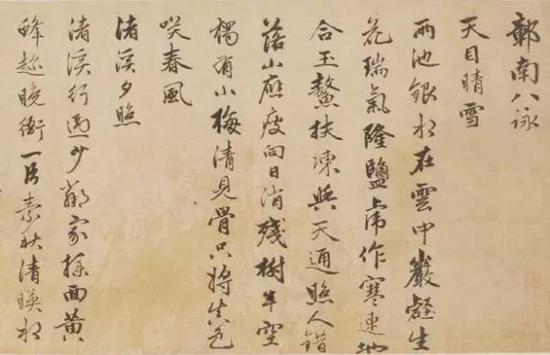 鄣南八詠
天目晴雪
兩池銀水在雲中巖壑生
花瑞氣隆鹽虎作寒連地
合玉鰲扶凍與天通照人錯
落山應瘦向日消殘樹半空
獨有小梅清見骨只將生色
咲春風
渚溪夕照
渚溪行過少鄰家採黃
蜂趂晚衙一片素秋清暎水